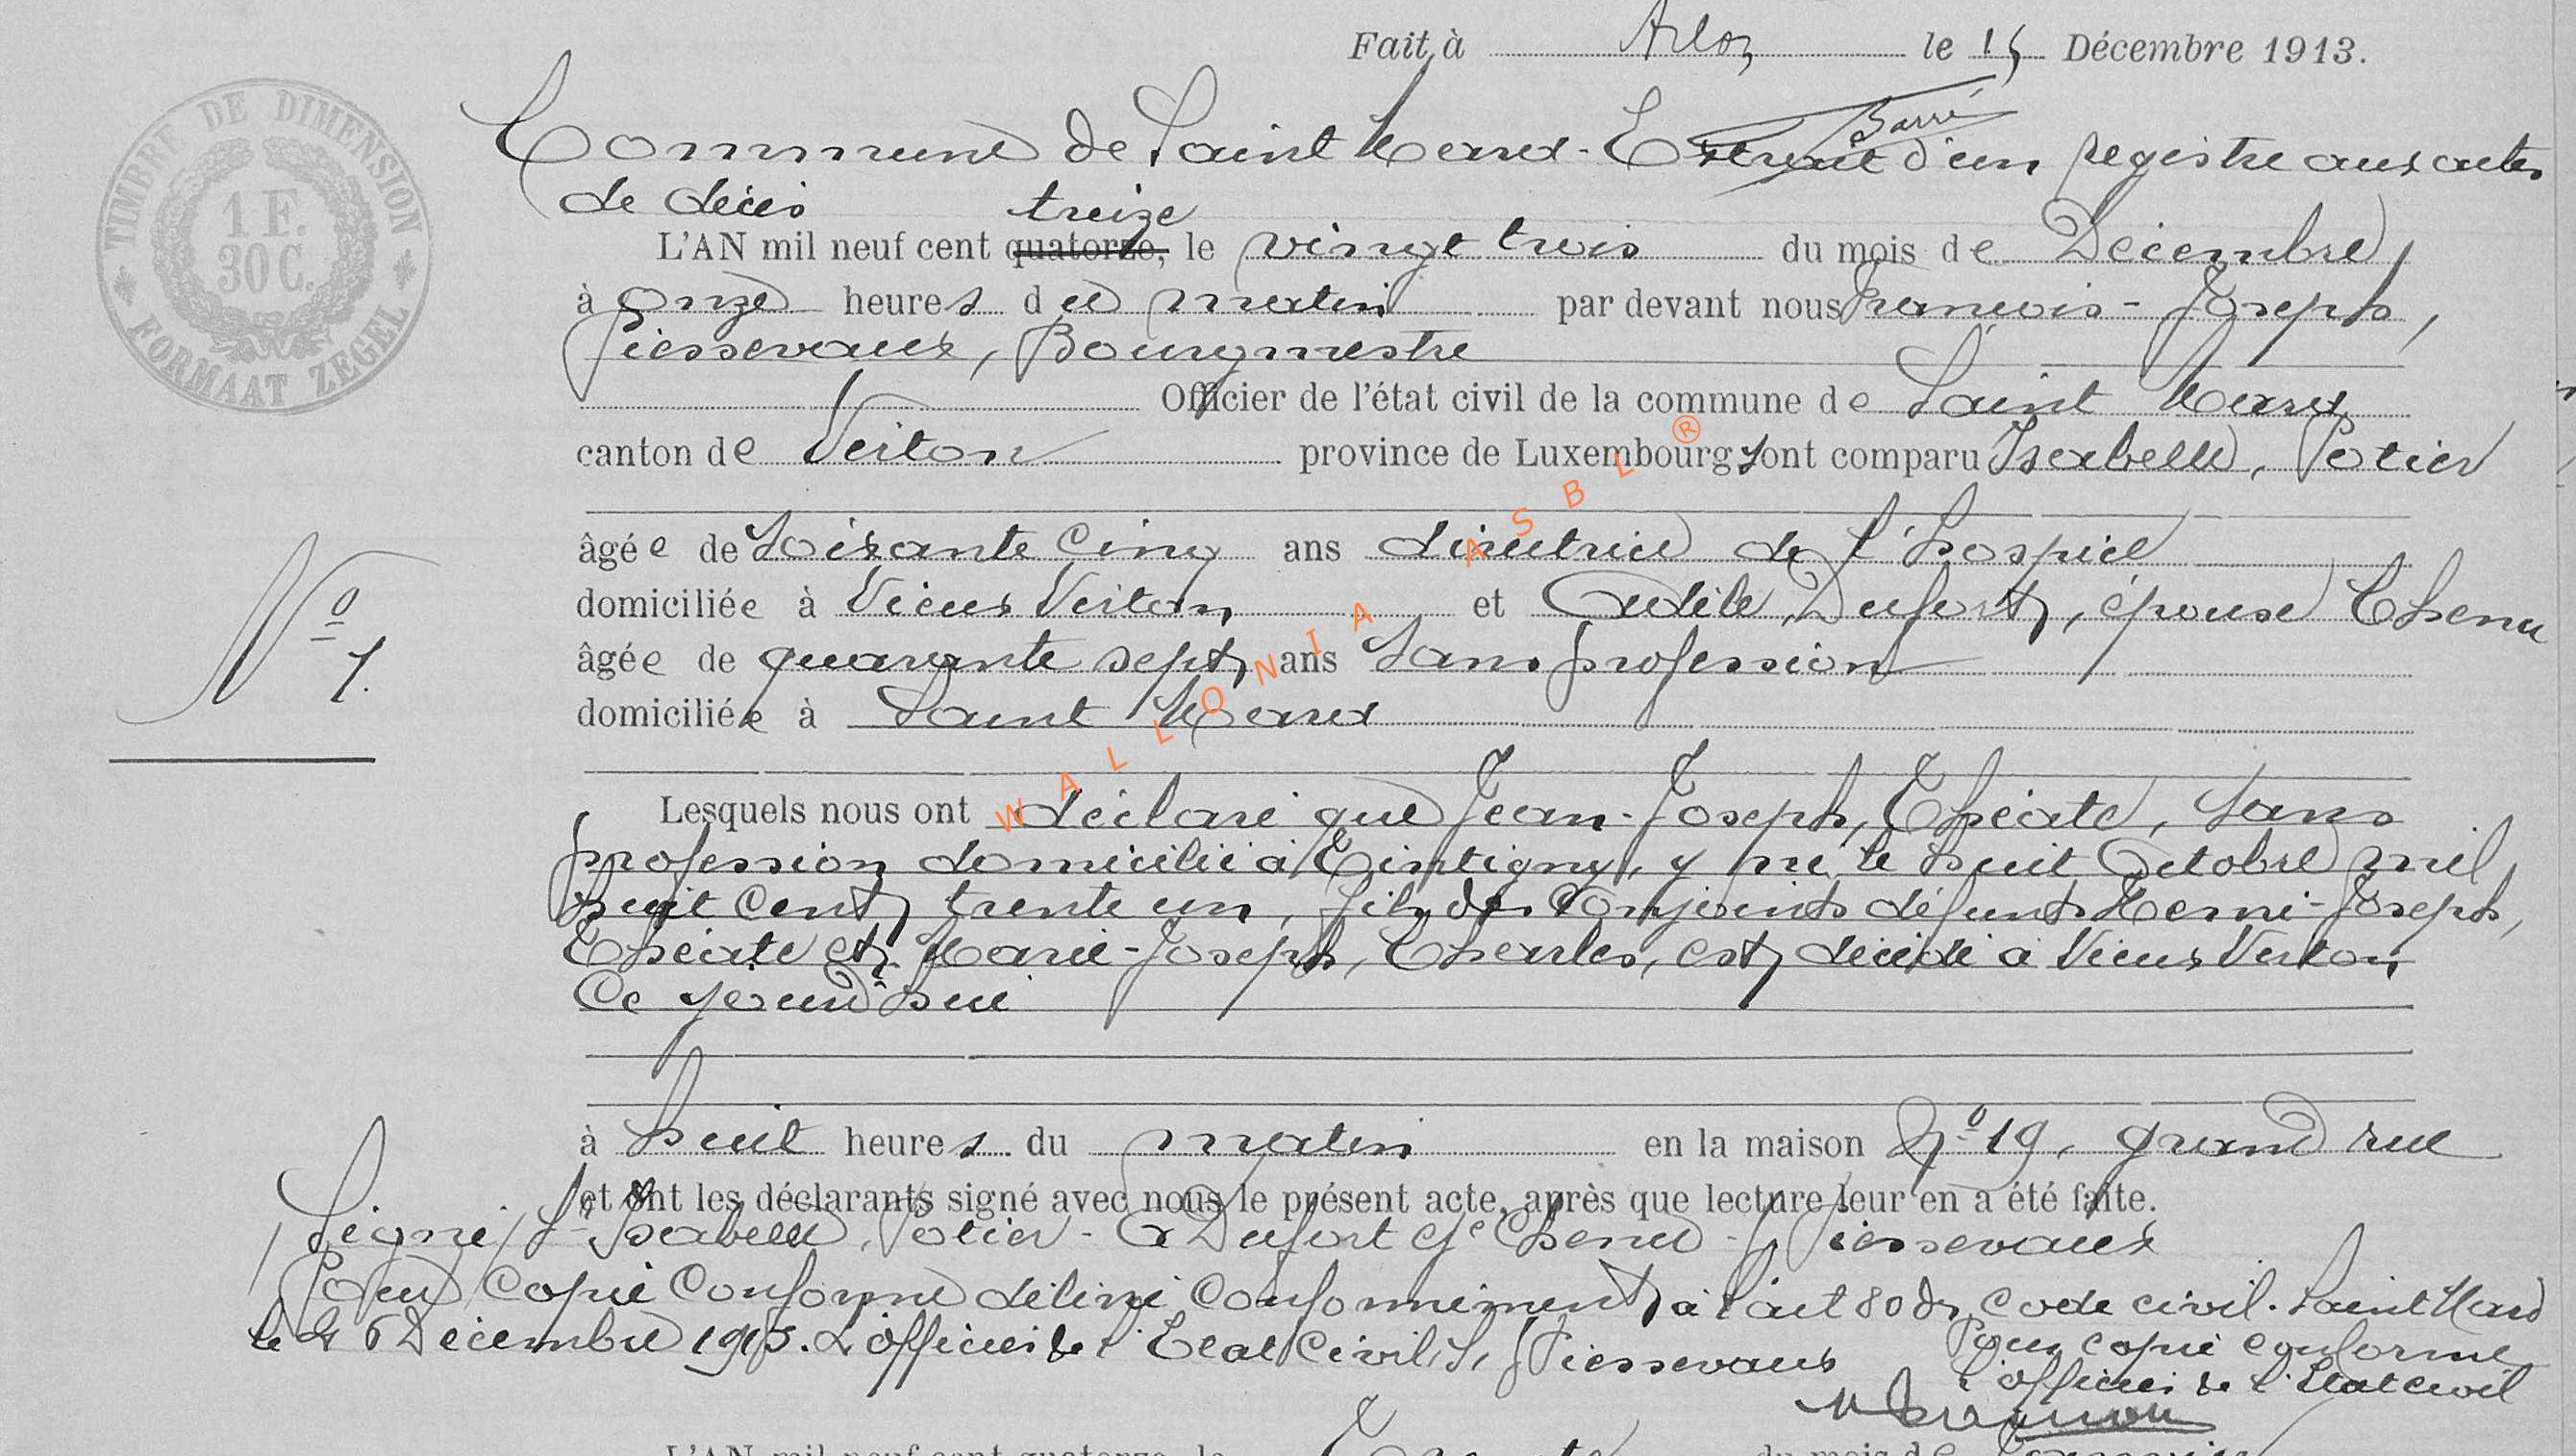 Fait à Arlon le 15 Décembre 1913.
TIMBRE DE DIMENSION
1 F.
30 C.
FORMAAT ZEGEL
Barré
Commune de Saint Mard - Extrait d'un registre aux actes
de décès treize
L'AN mil neuf cent quatorze, le vingt trois du mois de Décembre
à onze heures du matin par devant nous François-Joseph,
Piessevaux, Bourgmestre
Officier de l'état civil de la commune de Saint Mard
canton de Virton province de Luxembourg sont comparu Isabelle, Potier
âgée de Soixante cinq ans directrice de l'hospice
domiciliée à Vieux Virton et Adèle, Dufort, épouse Chenu
âgée de quarante sept ans Sans profession
N° 1.
domiciliée à Saint Mard
Lesquels nous ont déclaré que Jean-Joseph, Théate, sans
profession domicilié à Tintigny, y né le huit Octobre mil
huit cent trente un, fils des conjoints défunts Henri-Joseph,
Théate et Marie-Joseph, Charles, est décédé à Vieux Virton
Ce jourd'hui
à huit heures du matin en la maison N° 19, grand rue
et ont les déclarants signé avec nous le présent acte, après que lecture leur en a été faite.
Signé, Isabelle, Potier - A Dufort Chenu - J Piessevaux
Pour copie conforme délivré conformément à l'art 80 du code civil. Saint Mard
le Décembre 1913. L'officier de l'Etat Civil, S, J Piessevaux
Pour copie conforme
l'officier de l'Etat civil
L'AN mil neuf cent quatorze, le trente du mois de Janvier
WALLONIA ASBL ®